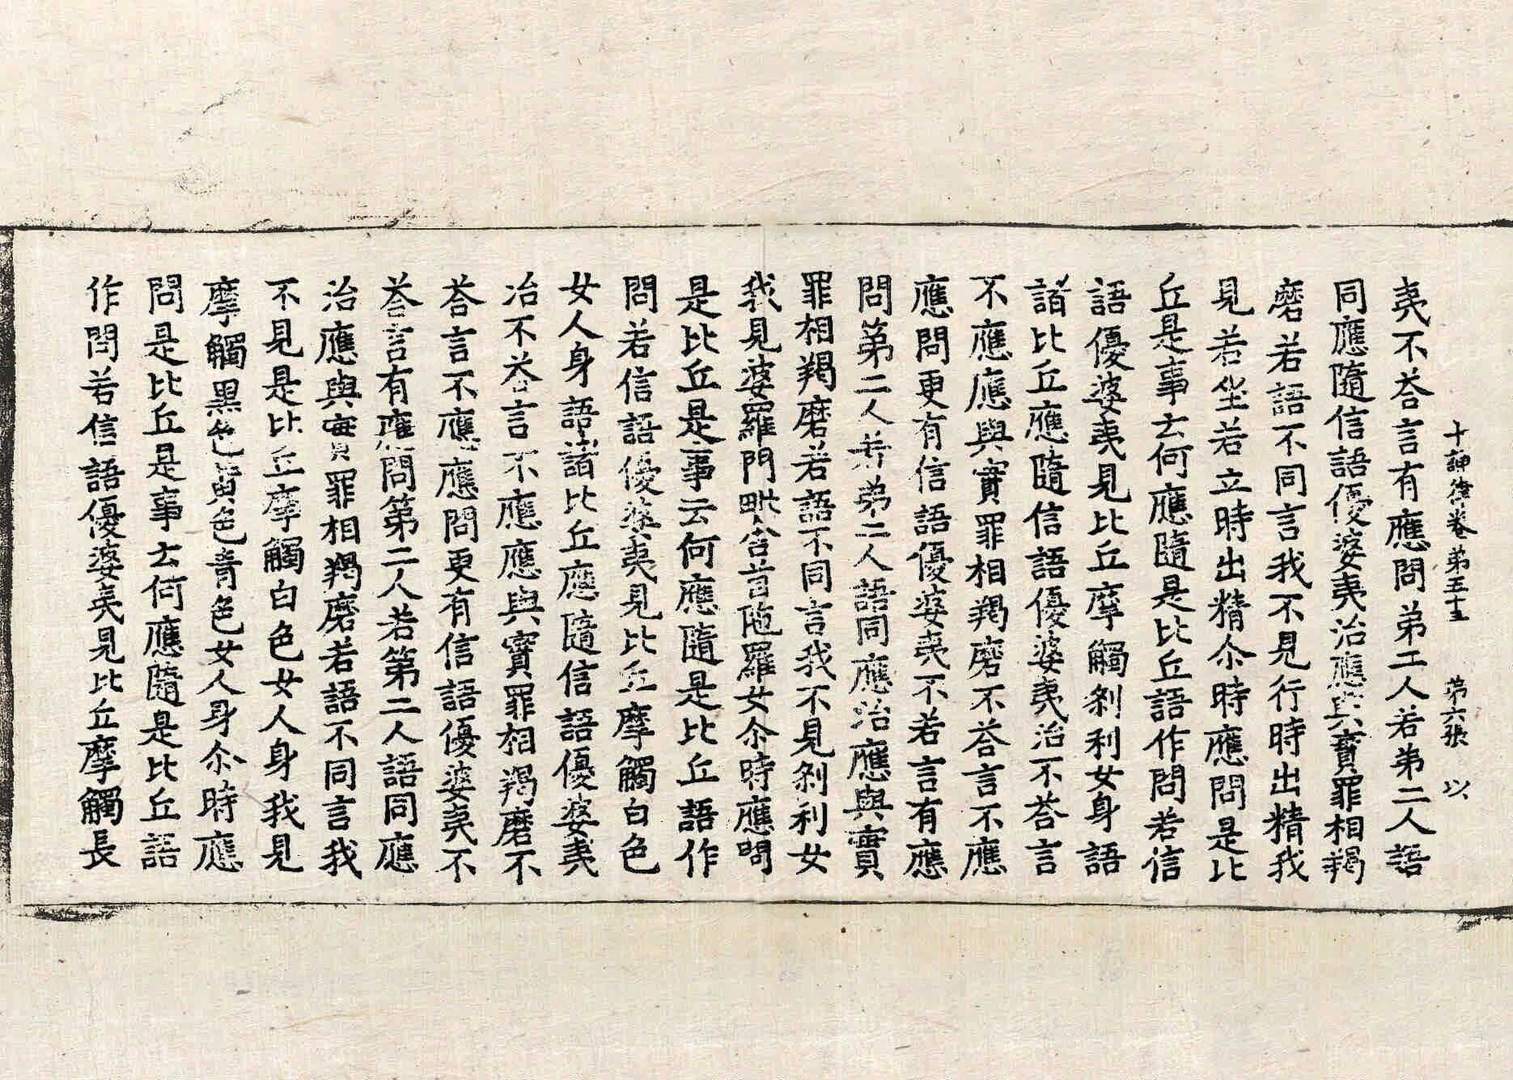 十誦律卷第五十三　第六張　以
夷不荅言有應問弟二人若弟二人語
同應隨信語優婆夷治應與實罪相羯
磨若語不同言我不見行時出精我
見若坐若立時出精尒時應問是比
丘是事云何應隨是比丘語作問若信
語優婆夷見比丘摩觸剎利女身語
諸比丘應隨信語優婆夷治不荅言
不應應與實罪相羯磨不荅言不應
應問更有信語優婆夷不若言有應
問第二人若弟二人語同應治應與實
罪相羯磨若語不同言我不見剎利女
我見婆羅門毗舍首陁羅女尒時應問
是比丘是事云何應隨是比丘語作
問若信語優婆夷見比丘摩觸白色
女人身語諸比丘應隨信語優婆夷
治不荅言不應應與實罪相羯磨不
荅言不應應問更有信語優婆夷不
荅言有應問第二人若第二人語同應
治應與實罪相羯磨若語不同言我
不見是比丘摩觸白色女人身我見
摩觸黑色黃色青色女人身尒時應
問是比丘是事云何應隨是比丘語
作問若信語優婆夷見比丘摩觸長